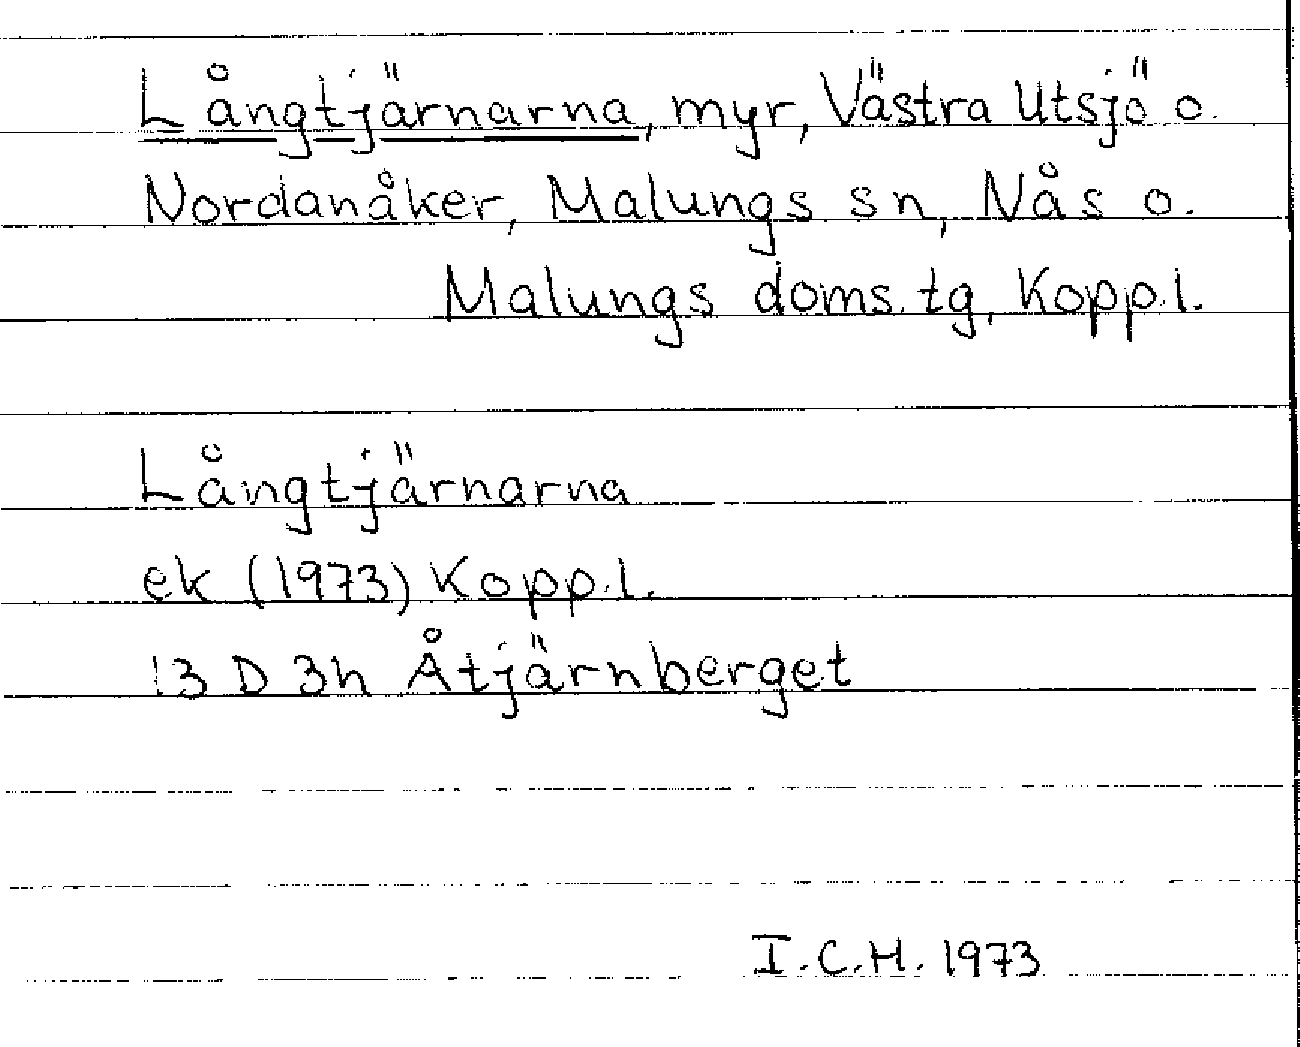 Långtjärnarna, myr, Västra Utsjö o.
Nordanåker, Malungs sn, Nås o.
Malungs doms. tg, Kopp.l.
Långtjärnarna
ek (1973) Kopp.l.
13 D 3h Åtjärnberget
I.C.H. 1973